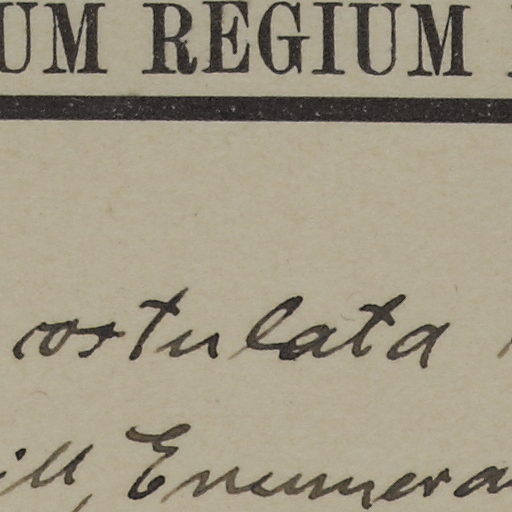 UM REGIUM
costulata
ill, Enumera